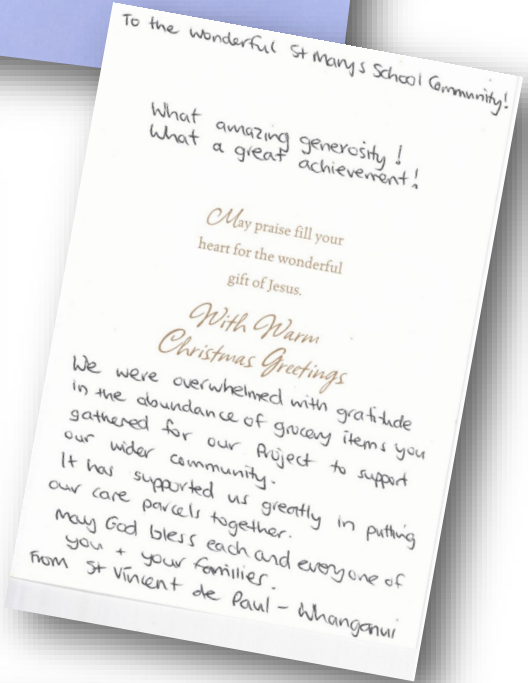 To the wonderful St Marys School Community!
What amazing generosity!
What a great achievement!
May praise fill your
heart for the wonderful
gift of Jesus.
With Warm
Christmas Greetings
We were overwhelmed with gratitude
in the abundance of grocery items you
gathered for our Project to support
our wider community.
It has supported us greatly in putting
our care parcels together.
May God bless each and everyone of
you + your famillies.
From St Vincent de Paul - Whanganui